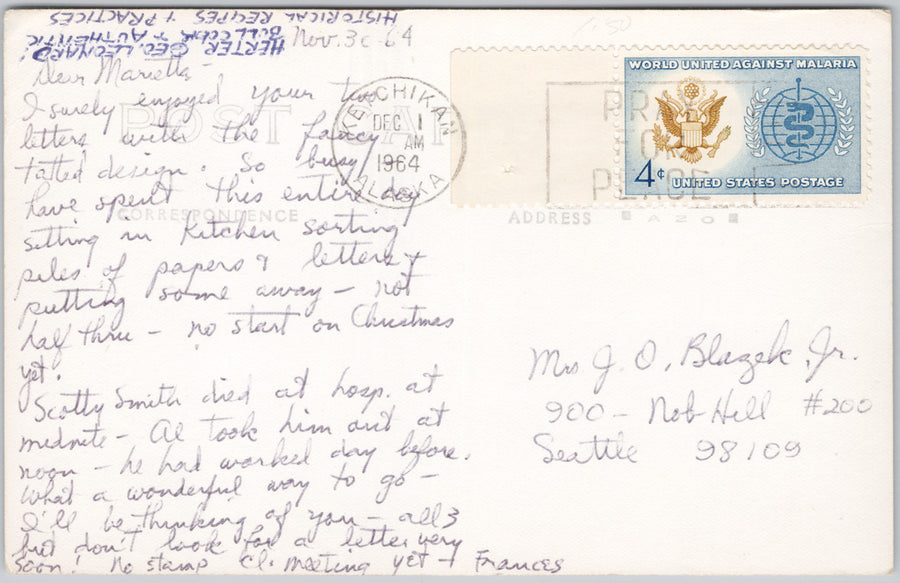 HERTER, GEO. LEONARD:
BULL COOK & AUTHENTIC
HISTORICAL RECIPES & PRACTICES
Nov. 30 - 64
1.50
Dear Marietta -
I surely enjoyed your two
letters with the fancy
tatted design. So busy,
have spent this entire day
sitting in kitchen sorting
piles of papers & letters &
putting some away - not
half thru - no start on Christmas
yet.
Scotty Smith died at hosp. at
midnite - Al took him out at
noon - he had worked day before.
What a wonderful way to go -
I'll be thinking of you - all 3
but don't look for a letter very
soon! No stamp Cl. meeting yet - Frances
POST CARD
CORRESPONDENCE
ADDRESS
KETCHIKAN
DEC 1
AM
1964
ALASKA
PRAY
FOR
PEACE
WORLD UNITED AGAINST MALARIA
4¢
UNITED STATES POSTAGE
AZO
Mrs J. O. Blazek, Jr.
900 - Nob Hill #200
Seattle 98109